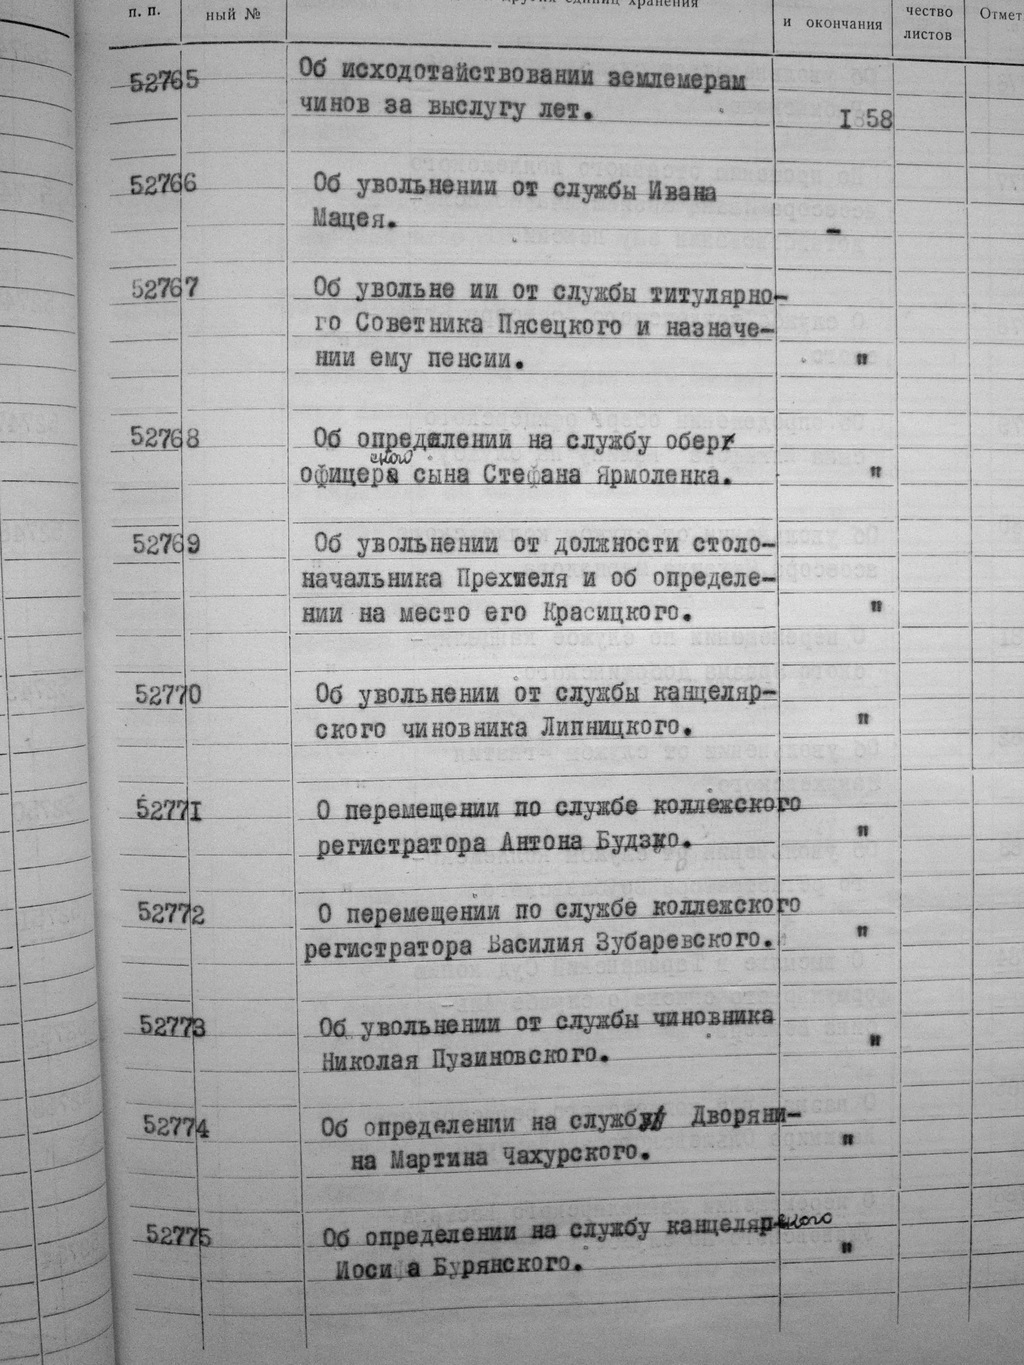 п. п.
ный №
других единиц хранения
и окончания
чество
листов
Отмет
52765
Об исходотайствовании землемерам
чинов за выслугу лет.
1858
52766
Об увольнении от службы Ивана
Мацея.
-
52767
Об увольне ии от службы титулярно-
го Советника Пясецкого и назначе-
нии ему пенсии.
"
52768
Об определении на службу обер
офицерского сына Стефана Ярмоленка.
"
52769
Об увольнении от должности столо-
начальника Прехтеля и об определе-
нии на место его Красицкого.
"
52770
Об увольнении от службы канцеляр-
ского чиновника Липницкого.
"
52771
О перемещении по службе коллежского
регистратора Антона Будзко.
"
52772
О перемещении по службе коллежского
регистратора Василия Зубаревского.
"
52773
Об увольнении от службы чиновника
Николая Пузиновского.
"
52774
Об определении на службу Дворяни-
на Мартина Чахурского.
"
52775
Об определении на службу канцелярского
Иосифа Бурянского.
"